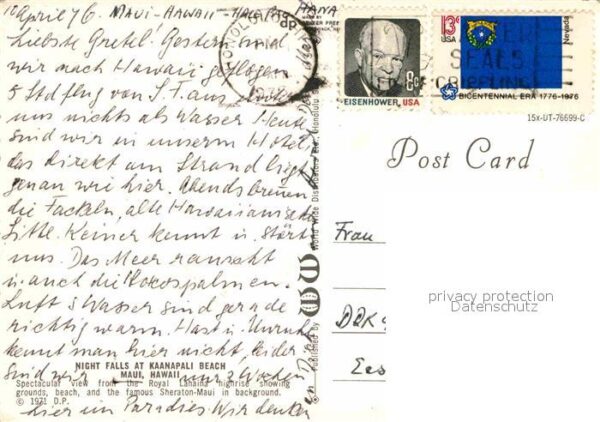 10 April 76. MAUI-HAWAII-
HANA
Liebste Gretel. Gestern sind
wir nach Hawaii geflogen
5 Stdflug von S.F. aus,
uns nichts als Wasser Heute
sind wir in unserm Hotel
das direkt am Strand liegt
genau wie hier. Abends brennen
die Fackeln, alte Hawaiianische
Sitte. Keiner kennt u. stört
uns. Das Meer rauscht
u. auch die Kokospalmen.
Luft & Wasser sind gerade
richtig warm. Hast u. Unruhe
kennt man hier nicht, leider
sind wir nur 2 Wochen
hier im Paradies. Wir denken
an Dich
NIGHT FALLS AT KAANAPALI BEACH
MAUI, HAWAII
Spectacular view from the Royal Lahaina highrise showing
grounds, beach, and the famous Sheraton-Maui in background.
© 1971 D.P.
Published by
World Wide Distributors
Honolulu
dp
HONOLULU
EISENHOWER, USA
8c
13c
USA
Nevada
BICENTENNIAL ERA 1776-1976
SEALS
CRIPPLING
15x-UT-76699-C
Post Card
Frau
DRK
privacy protection
Datenschutz